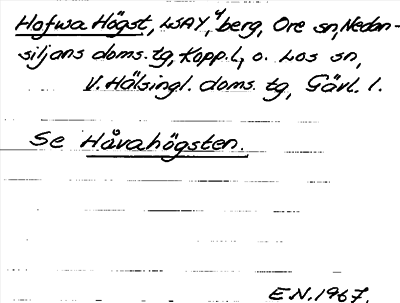 Hofwa Högst, LSAY⁴, berg, Ore sn, Nedan-
siljans doms. tg, Kopp. l, o. Los sn,
V. Hälsingl. doms. tg, Gävl. l.
Se Håvahögsten.
E.N. 1967.